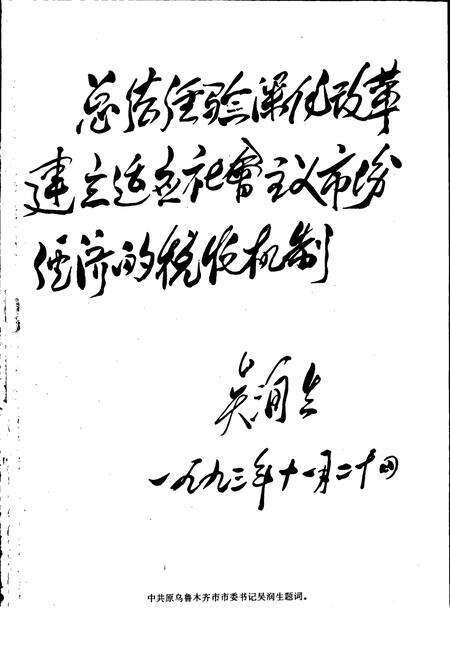 总结经验深化改革
建立适应社會主义市场
经济的税收机制
吴润生
一九九三年十一月二十四
中共原乌鲁木齐市市委书记吴润生题词。